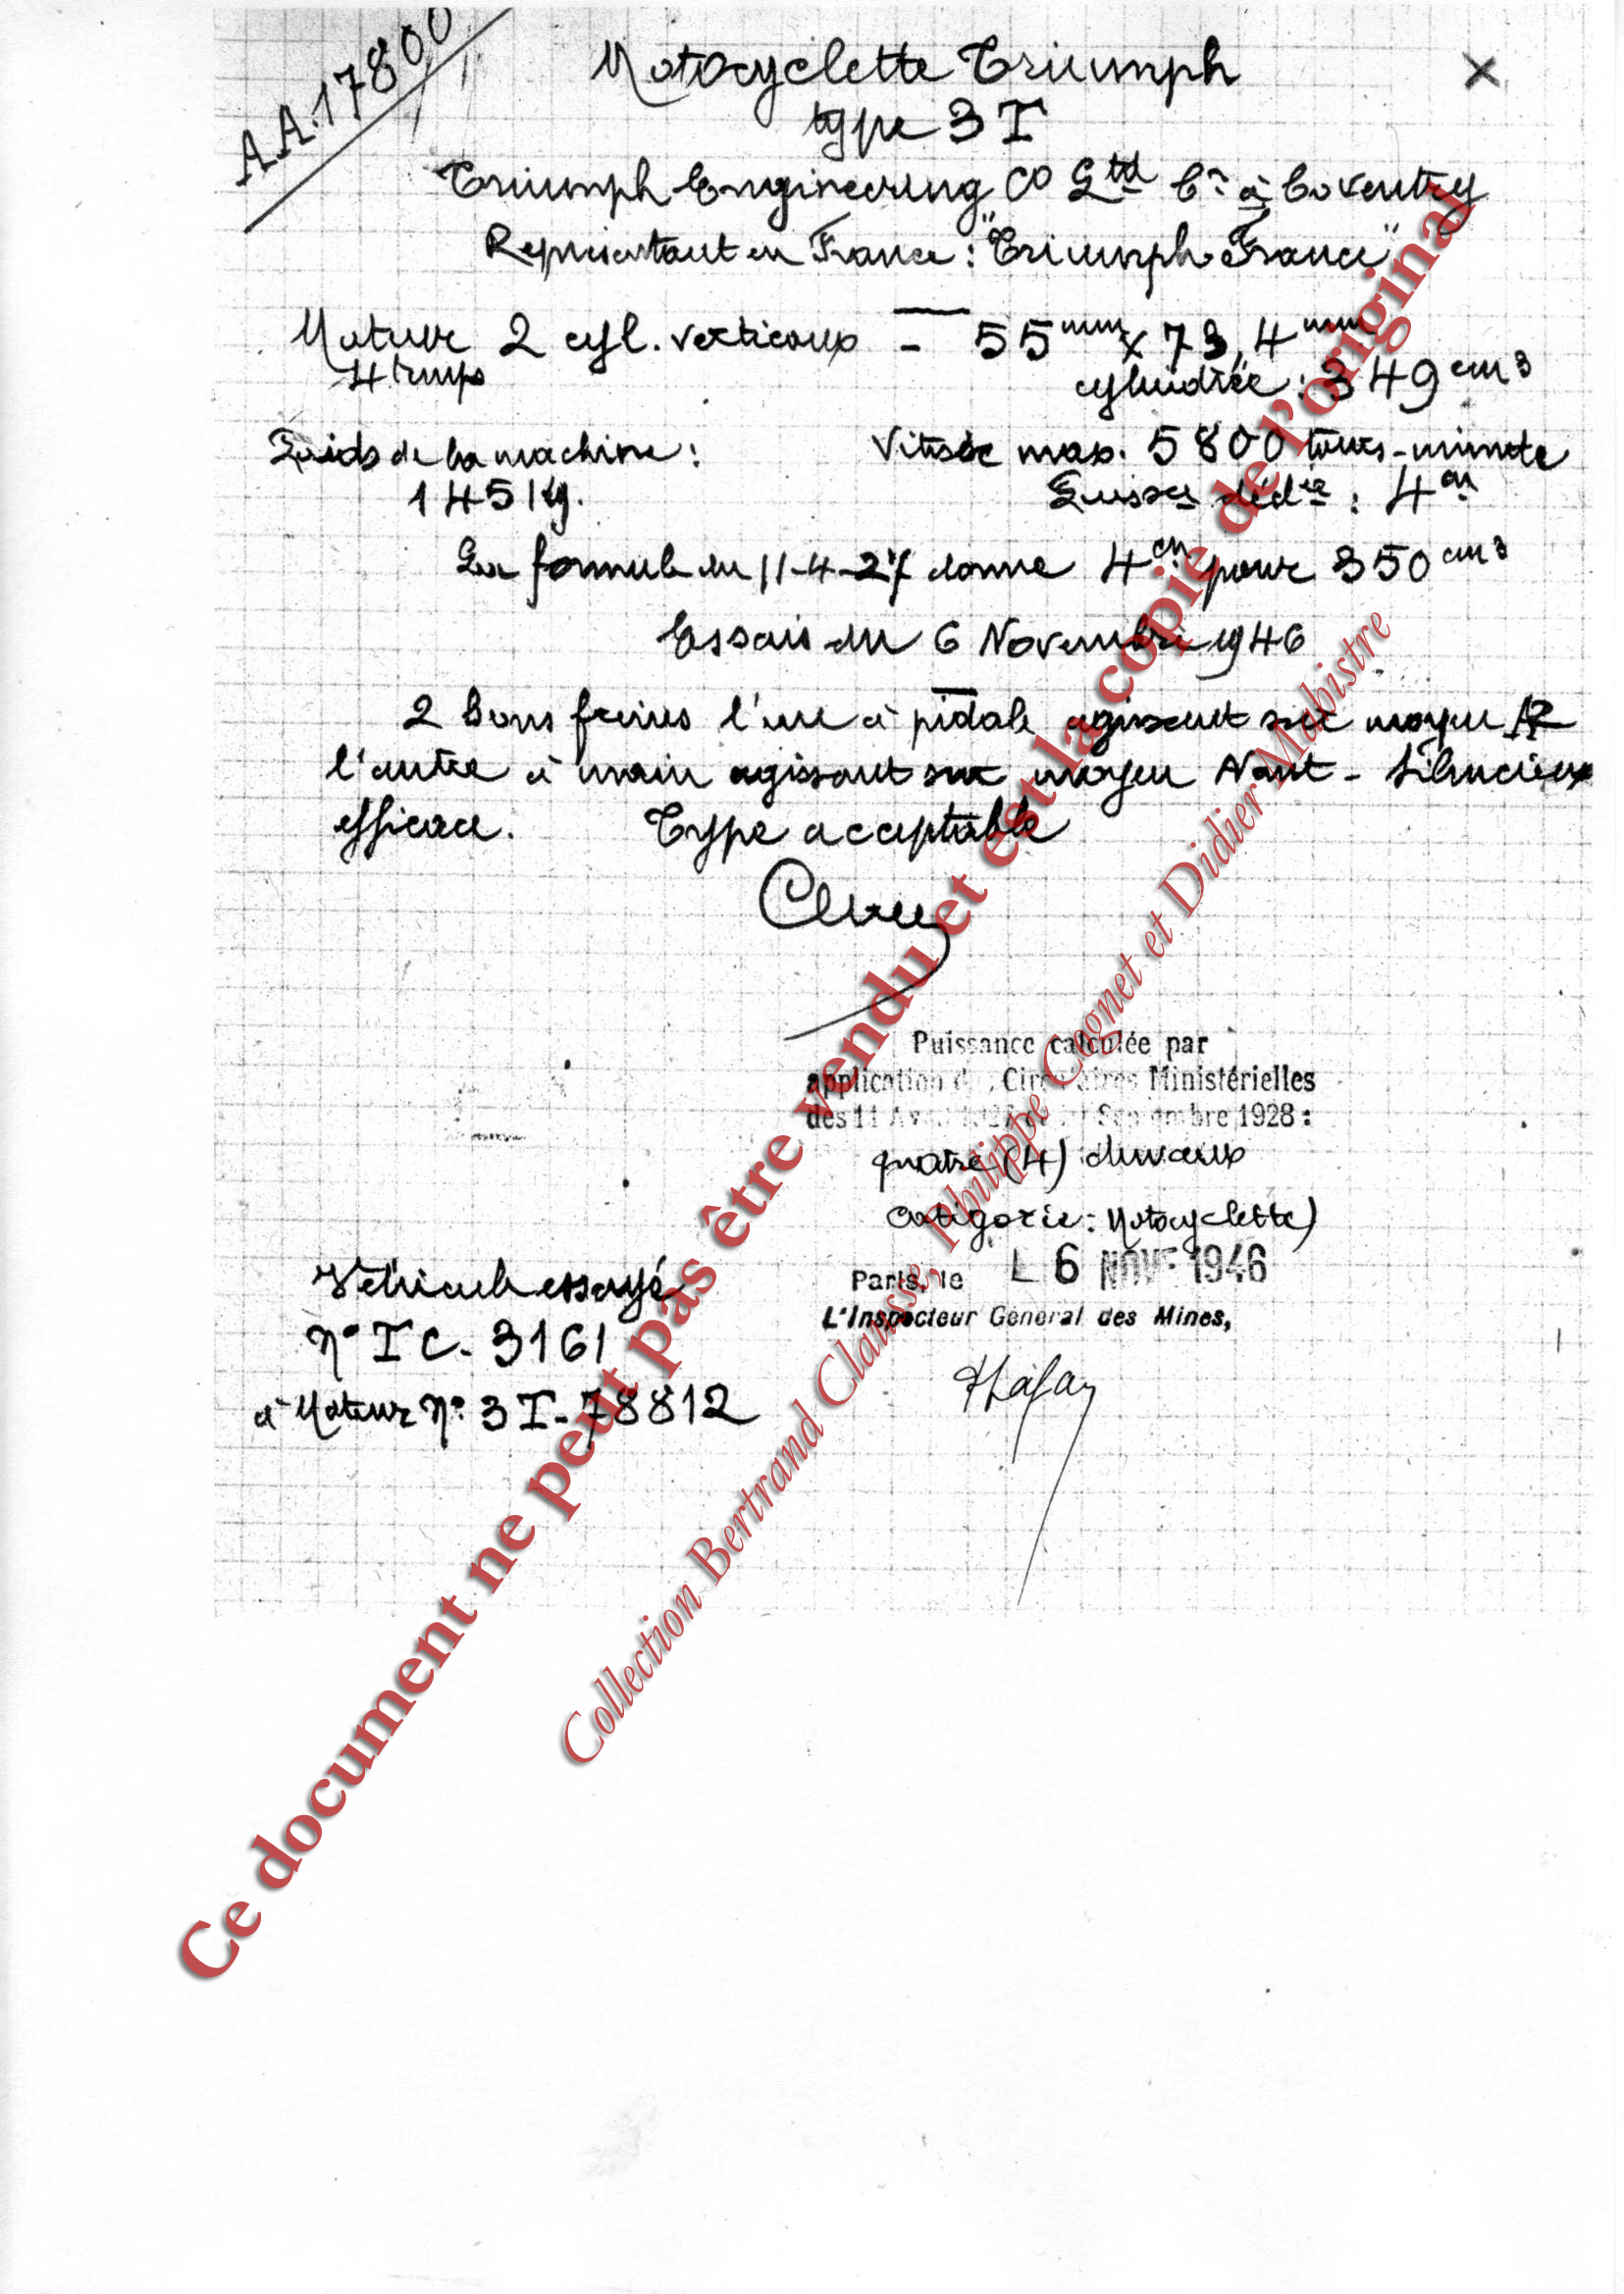 AA.17800
Motocyclette Triumph
type 3T
Triumph Engineering Co Ltd à Coventry
Représentant en France : "Triumph France"
Moteur 2 cyl. verticaux - 55 mm x 73,4 mm
4 temps
cylindrée : 349 cm3
Poids de la machine :
145 kg.
Vitesse max. 5800 tours-minute
Puissce : 4 cv
La formule du 11-4-27 donne 4 cv pour 350 cm3
Essais du 6 Novembre 1946
2 bons freins l'un à pédale agissant sur moyeu AR
l'autre à main agissant sur moyeu Avant - Silencieux
efficace. Type acceptable
Puissance calculée par
application des Circulaires Ministérielles
des 11 Avril 1927 et Septembre 1928 :
quatre (4) chevaux
Catégorie : Motocyclette)
Paris, le 6 NOV 1946
L'Inspecteur Général des Mines,
Véhicule essayé
n° TC-3161
à Moteur n° 3T-78812
Ce document ne peut pas être vendu et est la copie de l'original
Collection Bertrand Clausse, Philippe Cognet et Didier Mahistre